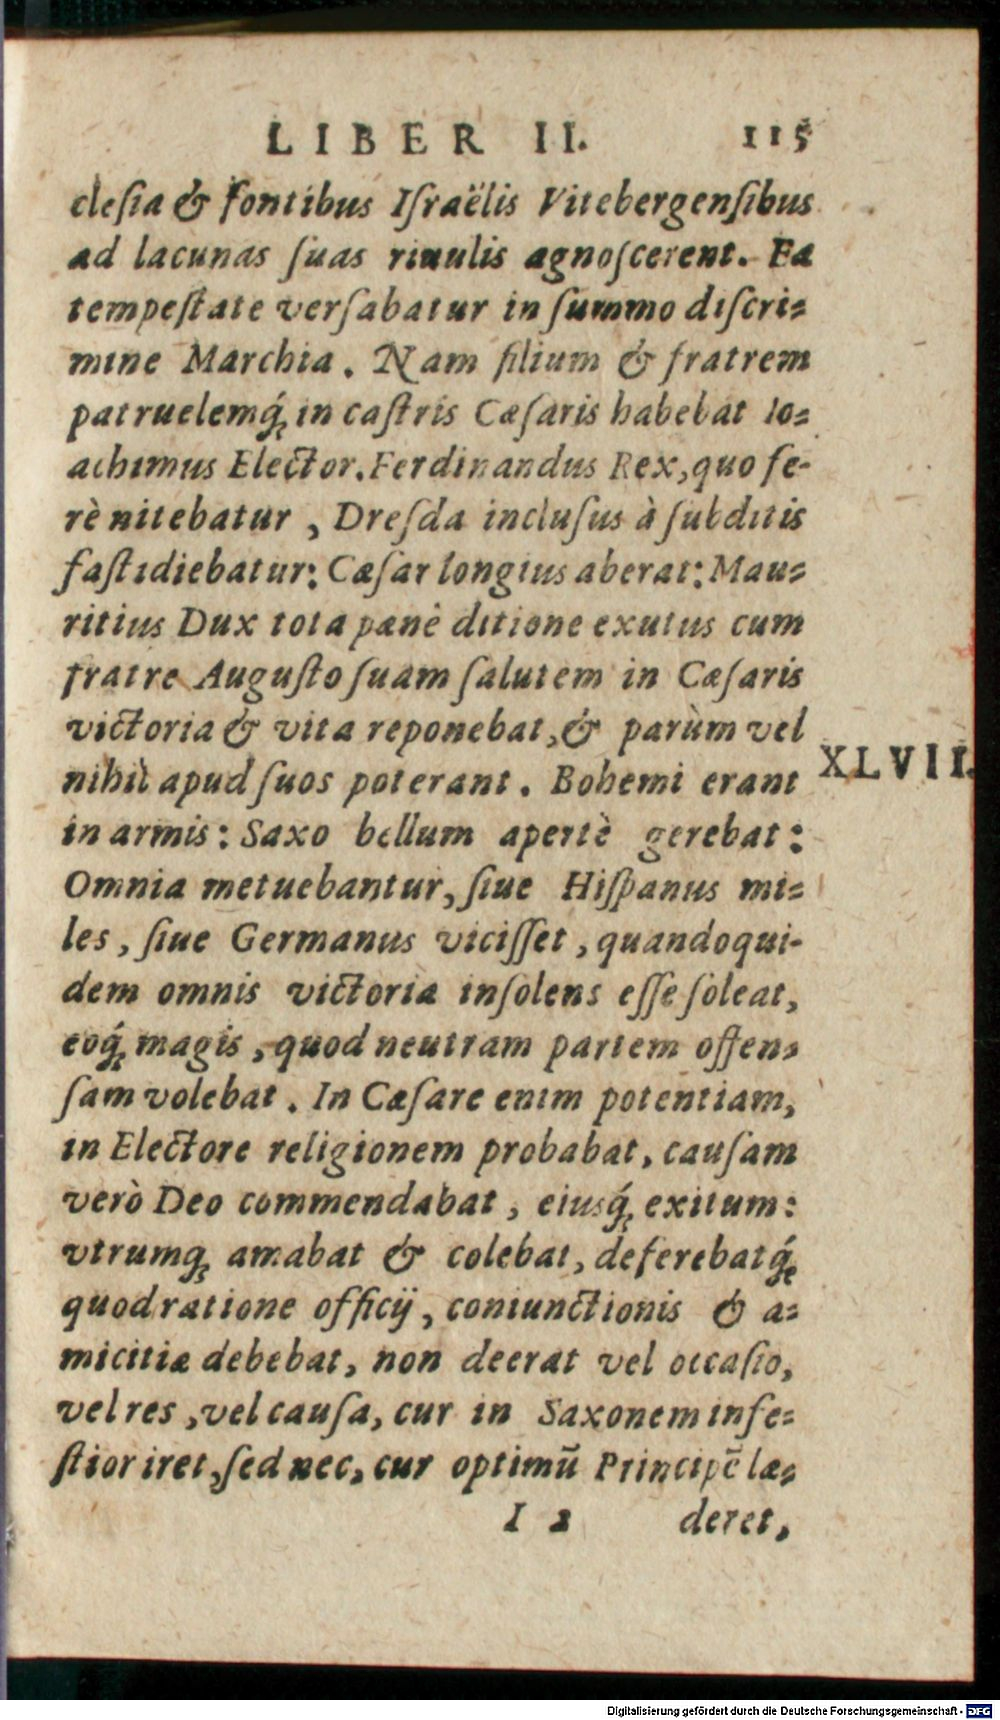 LIBER II. 115
clesia & fontibus Iſraëlis Vitebergenſibus
ad lacunas ſuas riuulis agnoſcerent. Ea
tempeſtate verſabatur in ſummo diſcri-
mine Marchia. Nam filium & fratrem
patruelemq́; in caſtris Cæſaris habebat Io-
achimus Elector. Ferdinandus Rex, quo fe-
rè nitebatur, Dreſda incluſus à ſubditis
faſtidiebatur: Cæſar longius aberat: Mau-
ritius Dux tota pænè ditione exutus cum
fratre Auguſto ſuam ſalutem in Cæſaris
victoria & vita reponebat, & parùm vel
nihil apud ſuos poterant. Bohemi erant
XLVII.
in armis: Saxo bellum apertè gerebat:
Omnia metuebantur, ſiue Hiſpanus mi-
les, ſiue Germanus viciſſet, quandoqui-
dem omnis victoria inſolens eſſe ſoleat,
eoq́; magis, quod neutram partem offen-
ſam volebat. In Cæſare enim potentiam,
in Electore religionem probabat, cauſam
verò Deo commendabat, eiusq́; exitum:
vtrumq; amabat & colebat, deferebatq́;
quod ratione officij, coniunctionis & a-
micitiæ debebat, non deerat vel occaſio,
vel res, vel cauſa, cur in Saxonem infe-
ſtior iret, ſed nec, cur optimũ Principẽ læ-
I 2 deret,
Digitalisierung gefördert durch die Deutsche Forschungsgemeinschaft - DFG